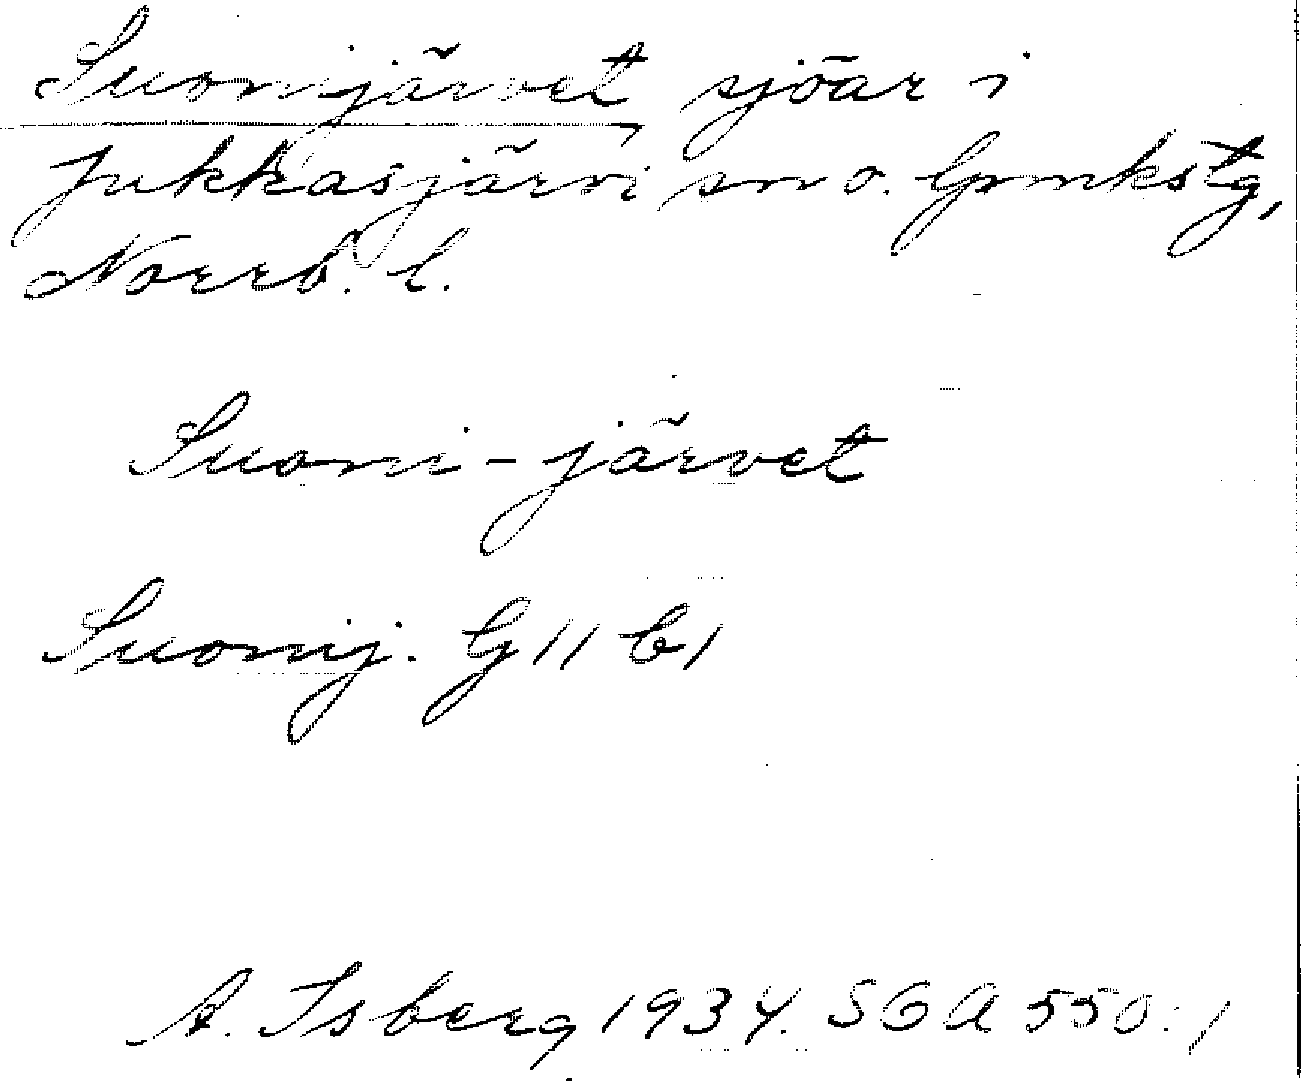 Suomijärvet, sjöar i
Jukkasjärvi sn o. lpmkstg,
Norrb. l.
Suomi-järvet
Suomij. G 11 b 1
A. Isberg 1934. SOA 550:1